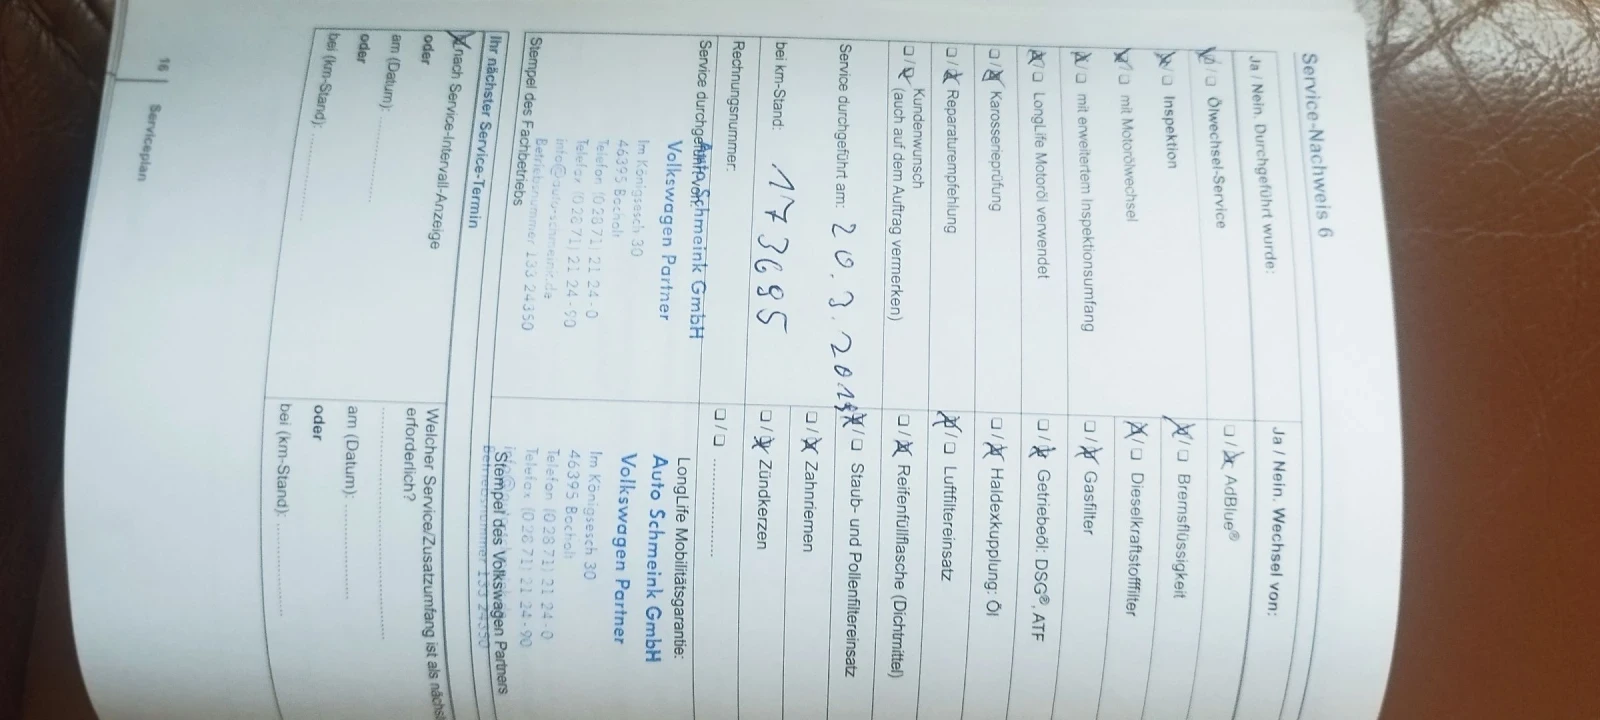 Service-Nachweis 6
Ja / Nein. Durchgeführt wurde:
☒/☐ Ölwechsel-Service
☒/☐ Inspektion
☒/☐ mit Motorölwechsel
☒/☐ mit erweitertem Inspektionsumfang
☒/☐ LongLife Motoröl verwendet
☐/☒ Karosserieprüfung
☐/☒ Reparaturempfehlung
☐/☒ Kundenwunsch
(auch auf dem Auftrag vermerken)
Service durchgeführt am: 20.3.2019
bei km-Stand: 173695
Rechnungsnummer:
Service durchgeführt von:
Auto Schmeink GmbH
Volkswagen Partner
Im Königsesch 30
46395 Bocholt
Telefon (0 28 71) 21 24 - 0
Telefax (0 28 71) 21 24 - 90
info@auto-schmeink.de
Betriebsnummer 133 24350
Stempel des Fachbetriebs
Ja / Nein. Wechsel von:
☐/☒ AdBlue®
☒/☐ Bremsflüssigkeit
☒/☐ Dieselkraftstofffilter
☐/☒ Gasfilter
☐/☒ Getriebeöl: DSG®, ATF
☐/☒ Haldexkupplung: Öl
☒/☐ Luftfiltereinsatz
☐/☒ Reifenfüllflasche (Dichtmittel)
☒/☐ Staub- und Pollenfiltereinsatz
☐/☒ Zahnriemen
☐/☒ Zündkerzen
☐/☐ ....................
LongLife Mobilitätsgarantie:
Auto Schmeink GmbH
Volkswagen Partner
Im Königsesch 30
46395 Bocholt
Telefon (0 28 71) 21 24 - 0
Telefax (0 28 71) 21 24 - 90
Betriebsnummer 133 24350
Stempel des Volkswagen Partners
Ihr nächster Service-Termin
☒ nach Service-Intervall-Anzeige
oder
am (Datum): ....................
oder
bei (km-Stand): ....................
Welcher Service/Zusatzumfang ist als
erforderlich?
........................................
am (Datum): ....................
oder
bei (km-Stand): ....................
16 | Serviceplan